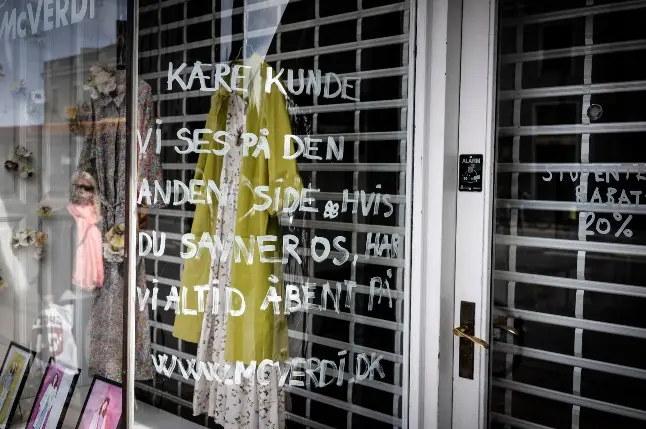 McVERDI
KÆRE KUNDE
VI SES PÅ DEN
ANDEN SIDE & HVIS
DU SAVNER OS, HAR
VI ALTID ÅBENT PÅ
WWW.MCVERDI.DK
ALARM
STUDENTER
RABAT
20%